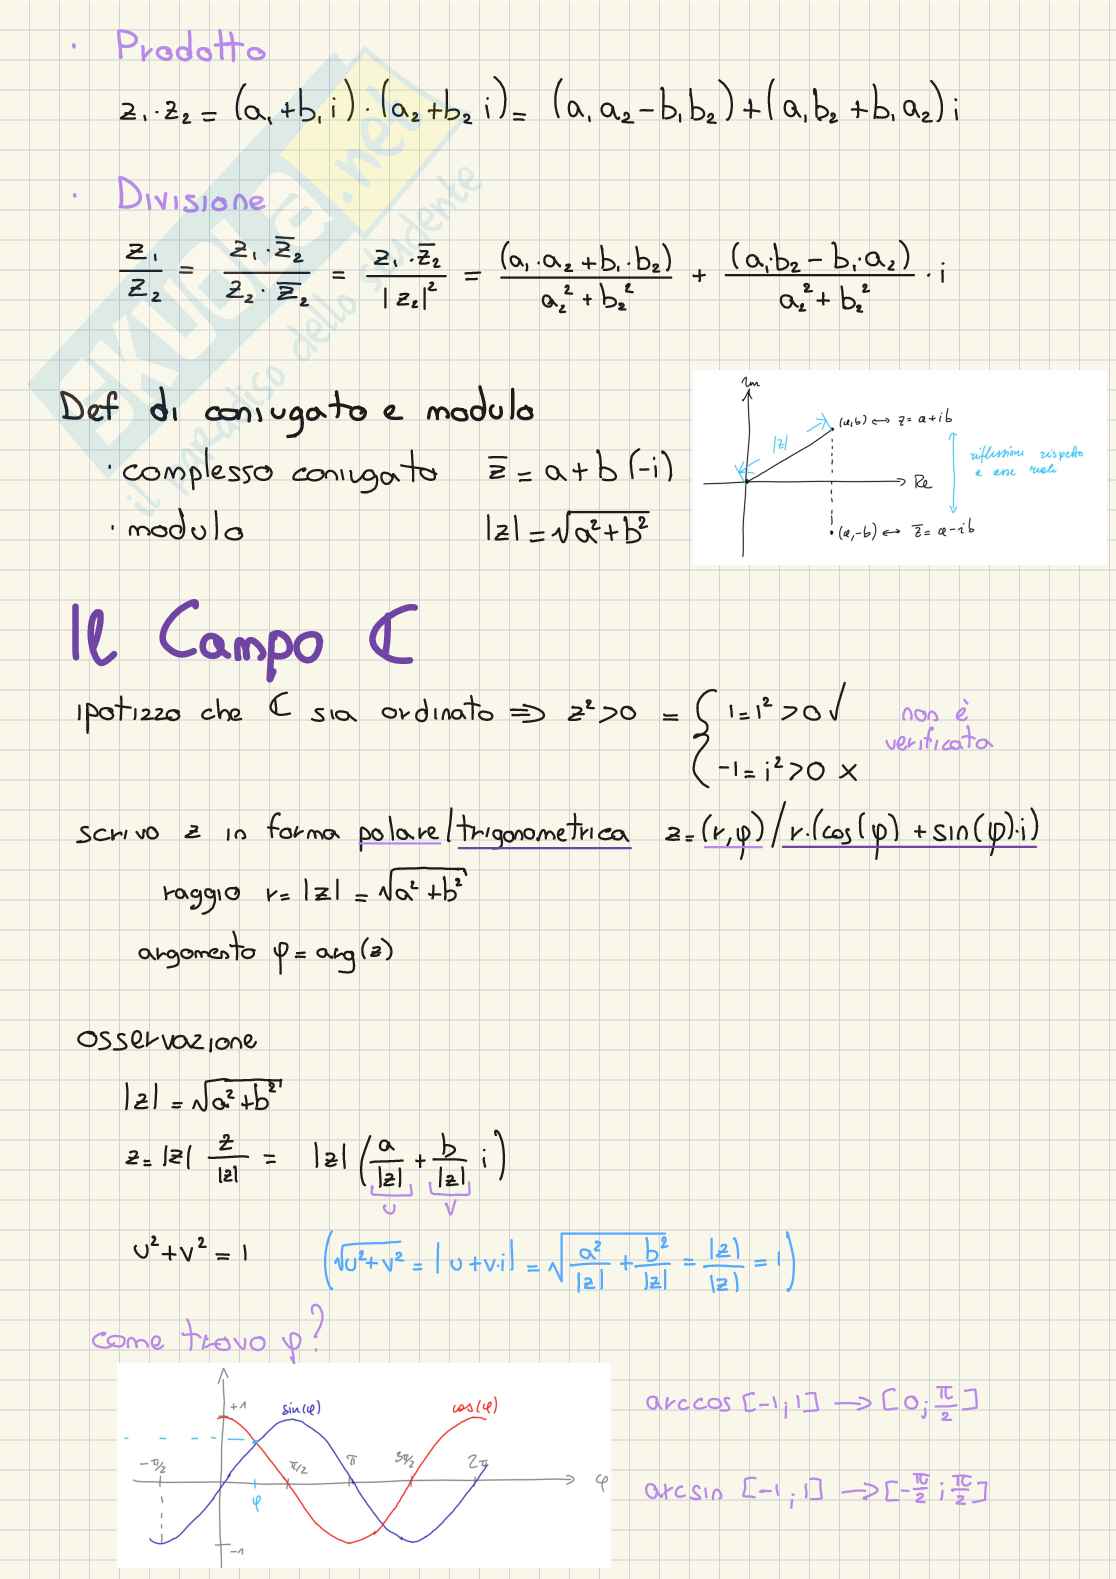 · Prodotto
z₁·z₂ = (a₁+b₁i)·(a₂+b₂i) = (a₁a₂−b₁b₂)+(a₁b₂+b₁a₂)i
· Divisione
z₁/z₂ = (z₁·z̅₂)/(z₂·z̅₂) = (z₁·z̅₂)/|z₂|² = (a₁·a₂+b₁·b₂)/(a₂²+b₂²) + (a₁·b₂−b₁·a₂)/(a₂²+b₂²) · i
SKUOLA.net
il paradiso dello studente
Def di coniugato e modulo
· complesso coniugato z̅ = a+b(−i)
· modulo |z| = √(a²+b²)
Im
(a,b) ↔ z=a+ib
|z|
riflessioni rispetto
a asse reale
Re
(a,−b) ↔ z̅=a−ib
Il Campo ℂ
ipotizzo che ℂ sia ordinato ⇒ z²>0 = { 1=1²>0 √
−1=i²>0 x
non è
verificata
scrivo z in forma polare/trigonometrica z=(r,φ)/r·(cos(φ)+sin(φ)·i)
raggio r=|z|=√(a²+b²)
argomento φ=arg(z)
osservazione
|z| = √(a²+b²)
z=|z| z/|z| = |z|(a/|z| + b/|z| i)
u v
u²+v²=1 (√(u²+v²) = |u+v·i| = √(a²/|z| + b²/|z|) = |z|/|z| = 1)
come trovo φ?
+1 sin(φ) cos(φ)
−π/2 π/2 π 3π/2 2π φ
φ
−1
arccos [−1;1] → [0;π/2]
arcsin [−1;1] → [−π/2;π/2]